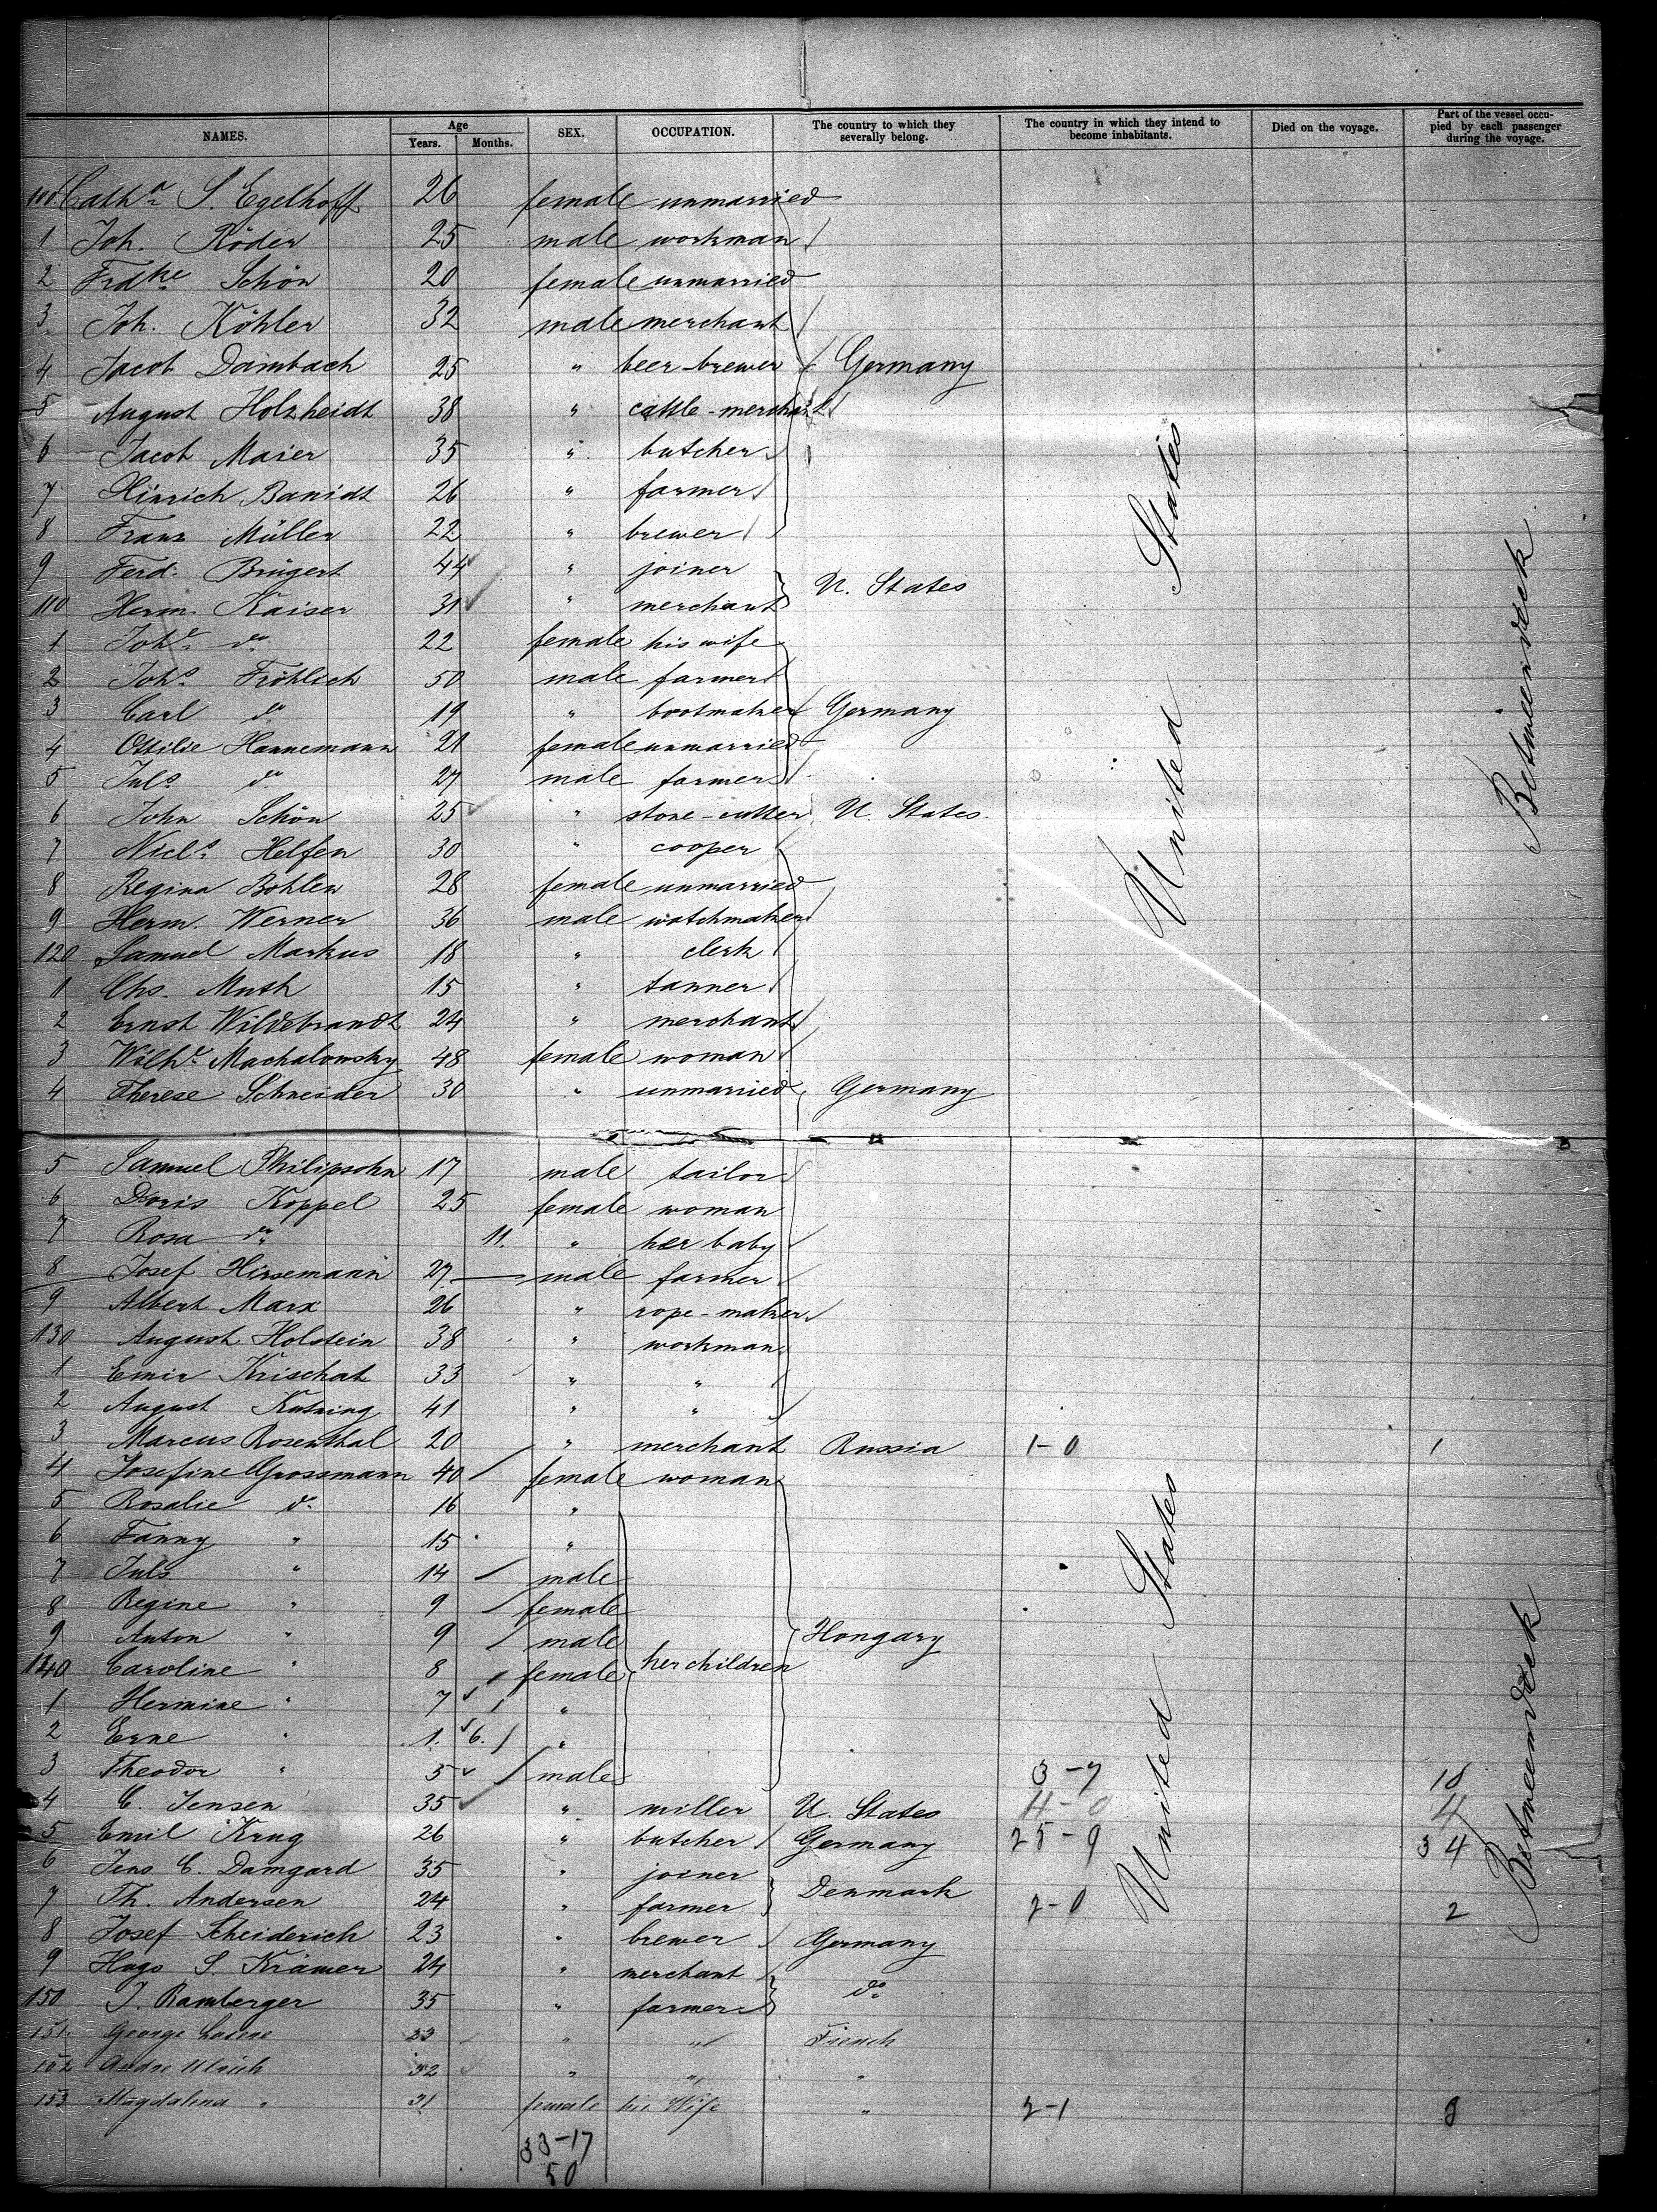 NAMES. Age Years. Months. SEX. OCCUPATION. The country to which they severally belong. The country in which they intend to become inhabitants. Died on the voyage. Part of the vessel occupied by each passenger during the voyage.
100 Cathª S. Egelhoff 26 female unmarried
1 Joh. Röder 25 male workman
2 Frdke Schön 20 female unmarried
3 Joh. Köhler 32 male merchant
4 Jacob Dambach 25 " beer-brewer Germany
5 August Holzheidt 38 " cattle-merchant
6 Jacob Maier 35 " butcher
7 Hinrich Banidt 26 " farmer
8 Franz Müller 22 " brewer
9 Ferd. Brügert 44 " joiner
110 Herm. Kaiser 31 " merchant U. States
1 Johe do 22 female his wife
2 Johs Fröhlich 50 male farmer
3 Carl do 19 " bootmaker Germany
4 Ottilie Hannemann 21 female unmarried
5 Juls do 27 male farmer
6 John Schön 25 " stone-cutter U. States
7 Nicls Helfen 30 " cooper
8 Regina Bohlen 28 female unmarried
9 Herm. Werner 36 male watchmaker
120 Samuel Markus 18 " clerk
1 Chs. Muth 15 " tanner
2 Ernst Wildebrandt 24 " merchant
3 Wilhe Machalowsky 48 female woman
4 Therese Schneider 30 " unmarried Germany
United States
Betweendeck
5 Samuel Philipsohn 17 male tailor
6 Doris Koppel 25 female woman
7 Rosa do 11. " her baby
8 Josef Hirsemann 27 male farmer
9 Albert Marx 26 " rope-maker
130 August Holstein 38 " workman
1 Emir Krischat 33 " "
2 August Kutning 41 " "
3 Marcus Rosenthal 20 " merchant Russia 1-0 1
4 Josefine Grossmann 40 female woman
5 Rosalie do 16 "
6 Fanny " 15 "
7 Juls " 14 male
8 Regine " 9 female
9 Anton " 9 male Hongary
140 Caroline " 8 female her children
1 Hermine " 7 "
2 Erne " 1. 6. "
3 Theodor " 5 male 3-7 10
4 C. Jensen 35 " miller U. States 4-0 4
5 Emil Krug 26 " butcher Germany 25-9 34
6 Jens C. Damgard 35 " joiner
7 Th. Andersen 24 " farmer Denmark 2-0 2
8 Josef Scheiderich 23 " brewer Germany
9 Hugo S. Krämer 24 " merchant
150 J. Ramberger 35 " farmer do
151. George 23 " " French
152 Andre Ulrich 32 " " "
153 Magdalena " 31 female his Wife " 2-1 3
United States
Betweendeck
33-17
50